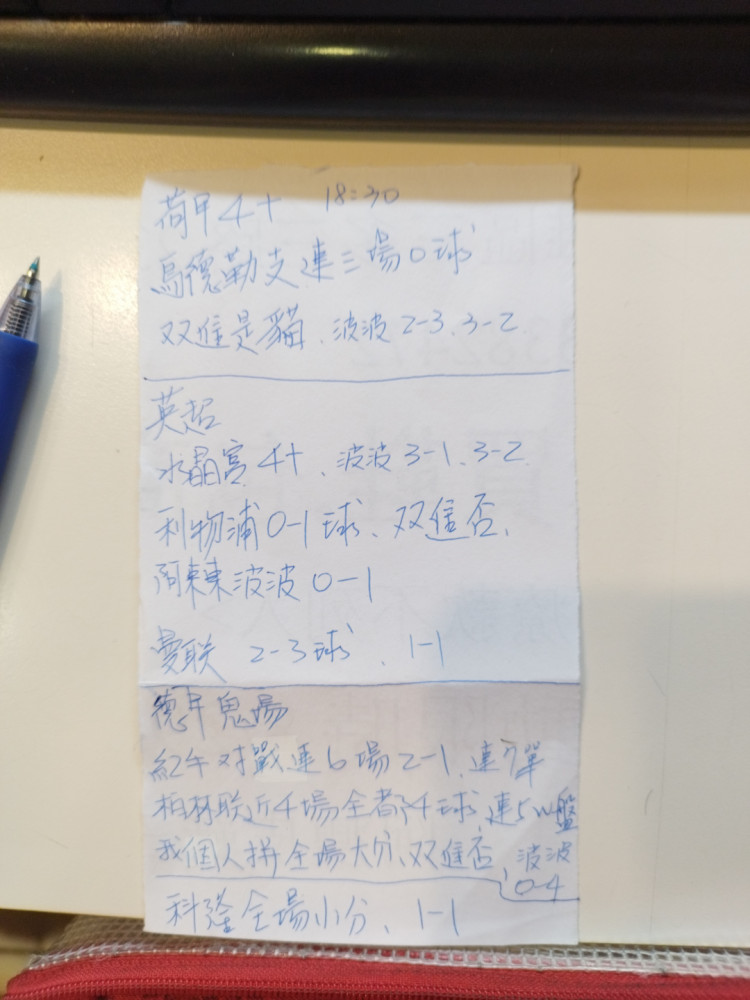 荷甲4+ 18:30
烏德勒支連三場0球
双進是貓、波波2-3、3-2
英超
水晶宮4+、波波3-1、3-2
利物浦0-1球、双進否、
阿東東波波0-1
曼联 2-3球、1-1
德甲鬼場
紅牛对戰連6場2-1、連7單
柏林联近4場全都4球 連5W盤
我個人拼全場大分、双進否、波波
0-4
科隆全場小分、1-1